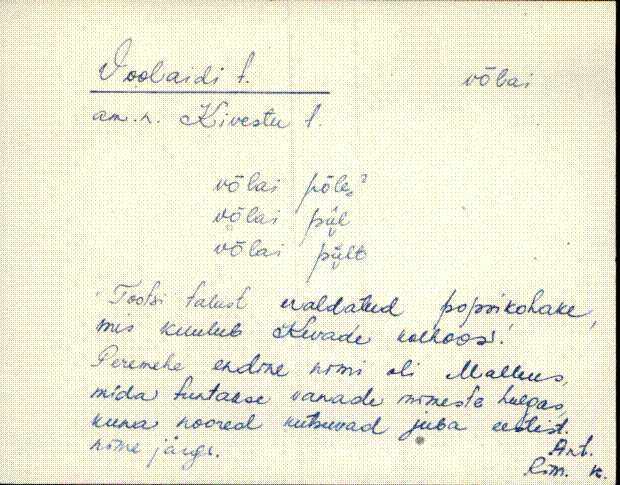 Voolaidi t. võlai
am. n. Kivestu t.
võlai põles?
võlai pül
võlai pült
Tootsi talust eraldatud popsikohake,
mis kuulub Kevade kolhoosi.
Peremehe endine nimi oli Malleus,
mida tuntakse vanade inimeste hulgas,
kuna noored kutsuvad juba eestist.
nime järgi. Ant.
Rõm. k.